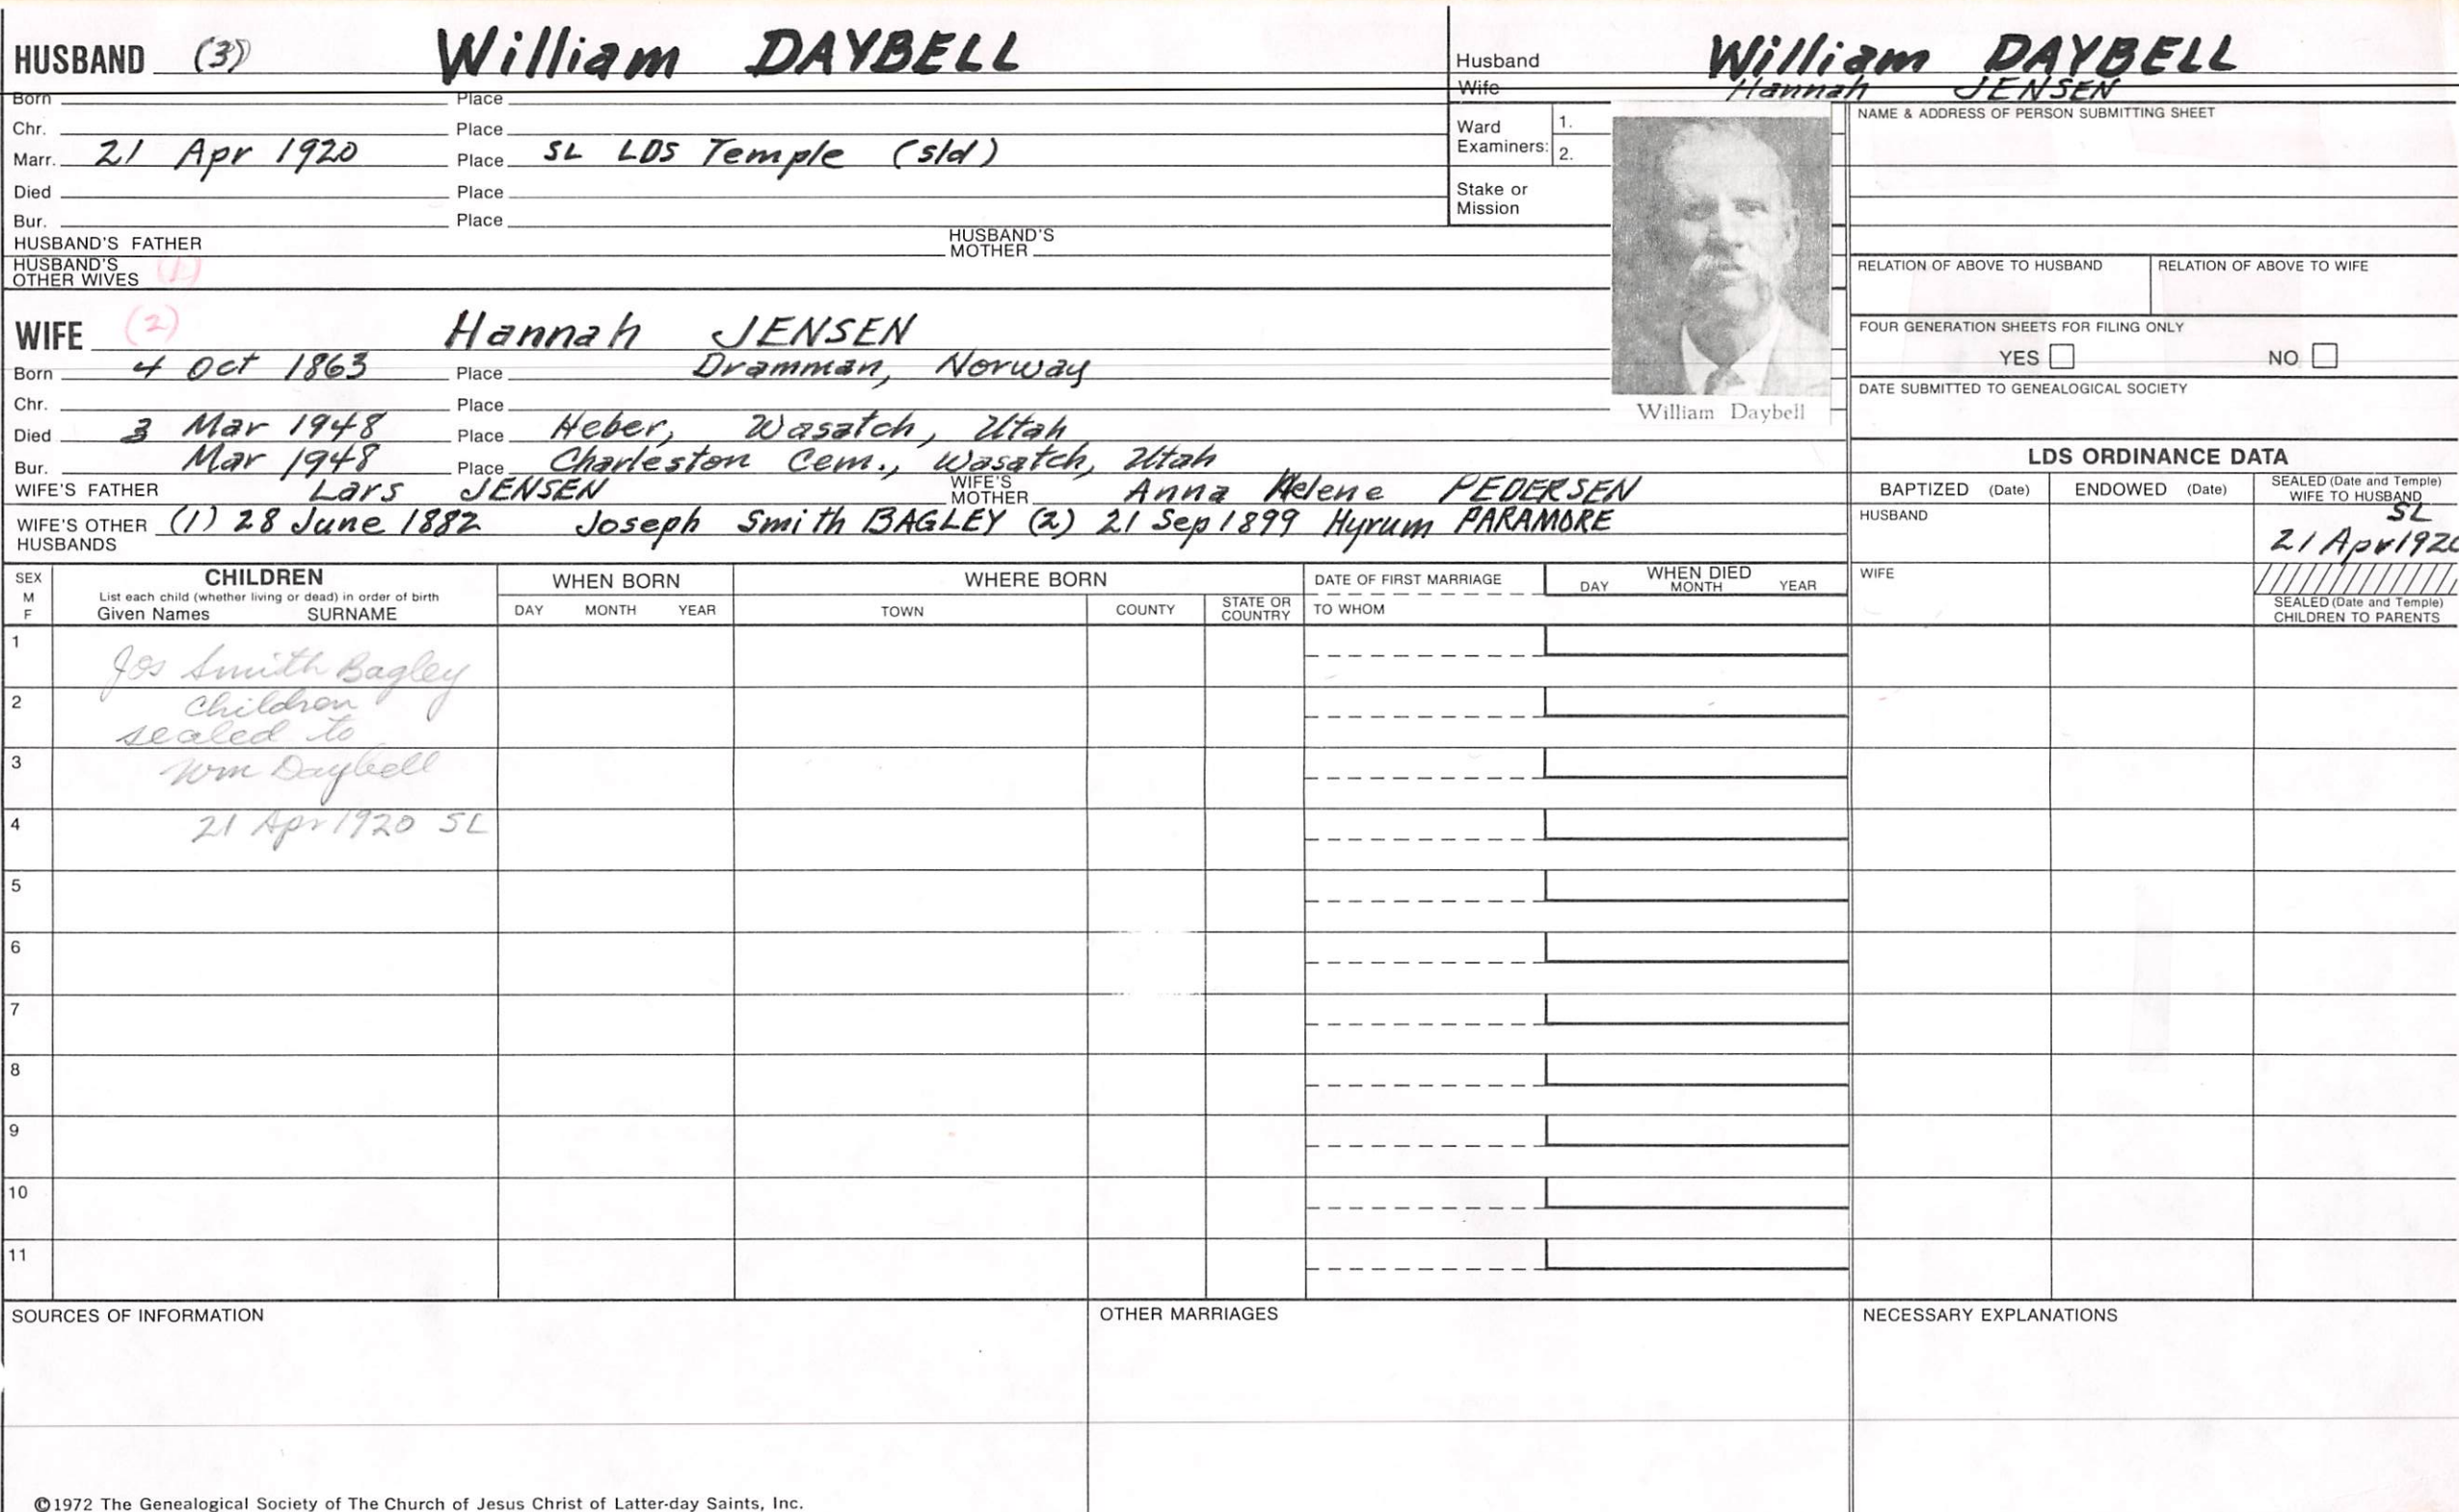 HUSBAND (3) William DAYBELL
Born Place
Chr. Place
Marr. 21 Apr 1920 Place SL LDS Temple (sld)
Died Place
Bur. Place
HUSBAND'S FATHER HUSBAND'S MOTHER
HUSBAND'S OTHER WIVES (1)
WIFE (2) Hannah JENSEN
Born 4 Oct 1863 Place Dramman, Norway
Chr. Place
Died 3 Mar 1948 Place Heber, Wasatch, Utah
Bur. Mar 1948 Place Charleston Cem., Wasatch, Utah
WIFE'S FATHER Lars JENSEN WIFE'S MOTHER Anna Helene PEDERSEN
WIFE'S OTHER HUSBANDS (1) 28 June 1882 Joseph Smith BAGLEY (2) 21 Sep 1899 Hyrum PARAMORE
Husband William DAYBELL
Wife Hannah JENSEN
Ward Examiners: 1.
2.
Stake or Mission
William Daybell
NAME & ADDRESS OF PERSON SUBMITTING SHEET
RELATION OF ABOVE TO HUSBAND RELATION OF ABOVE TO WIFE
FOUR GENERATION SHEETS FOR FILING ONLY
YES NO
DATE SUBMITTED TO GENEALOGICAL SOCIETY
LDS ORDINANCE DATA
BAPTIZED (Date) ENDOWED (Date) SEALED (Date and Temple) WIFE TO HUSBAND
HUSBAND SL
21 Apr 1920
WIFE
SEALED (Date and Temple)
CHILDREN TO PARENTS
SEX
M
F
CHILDREN
List each child (whether living or dead) in order of birth
Given Names SURNAME
WHEN BORN
DAY MONTH YEAR
WHERE BORN
TOWN COUNTY STATE OR COUNTRY
DATE OF FIRST MARRIAGE
TO WHOM
WHEN DIED
DAY MONTH YEAR
1 Jos Smith Bagley
2 Children
sealed to
3 Wm Daybell
4 21 Apr 1920 SL
5
6
7
8
9
10
11
SOURCES OF INFORMATION OTHER MARRIAGES NECESSARY EXPLANATIONS
©1972 The Genealogical Society of The Church of Jesus Christ of Latter-day Saints, Inc.